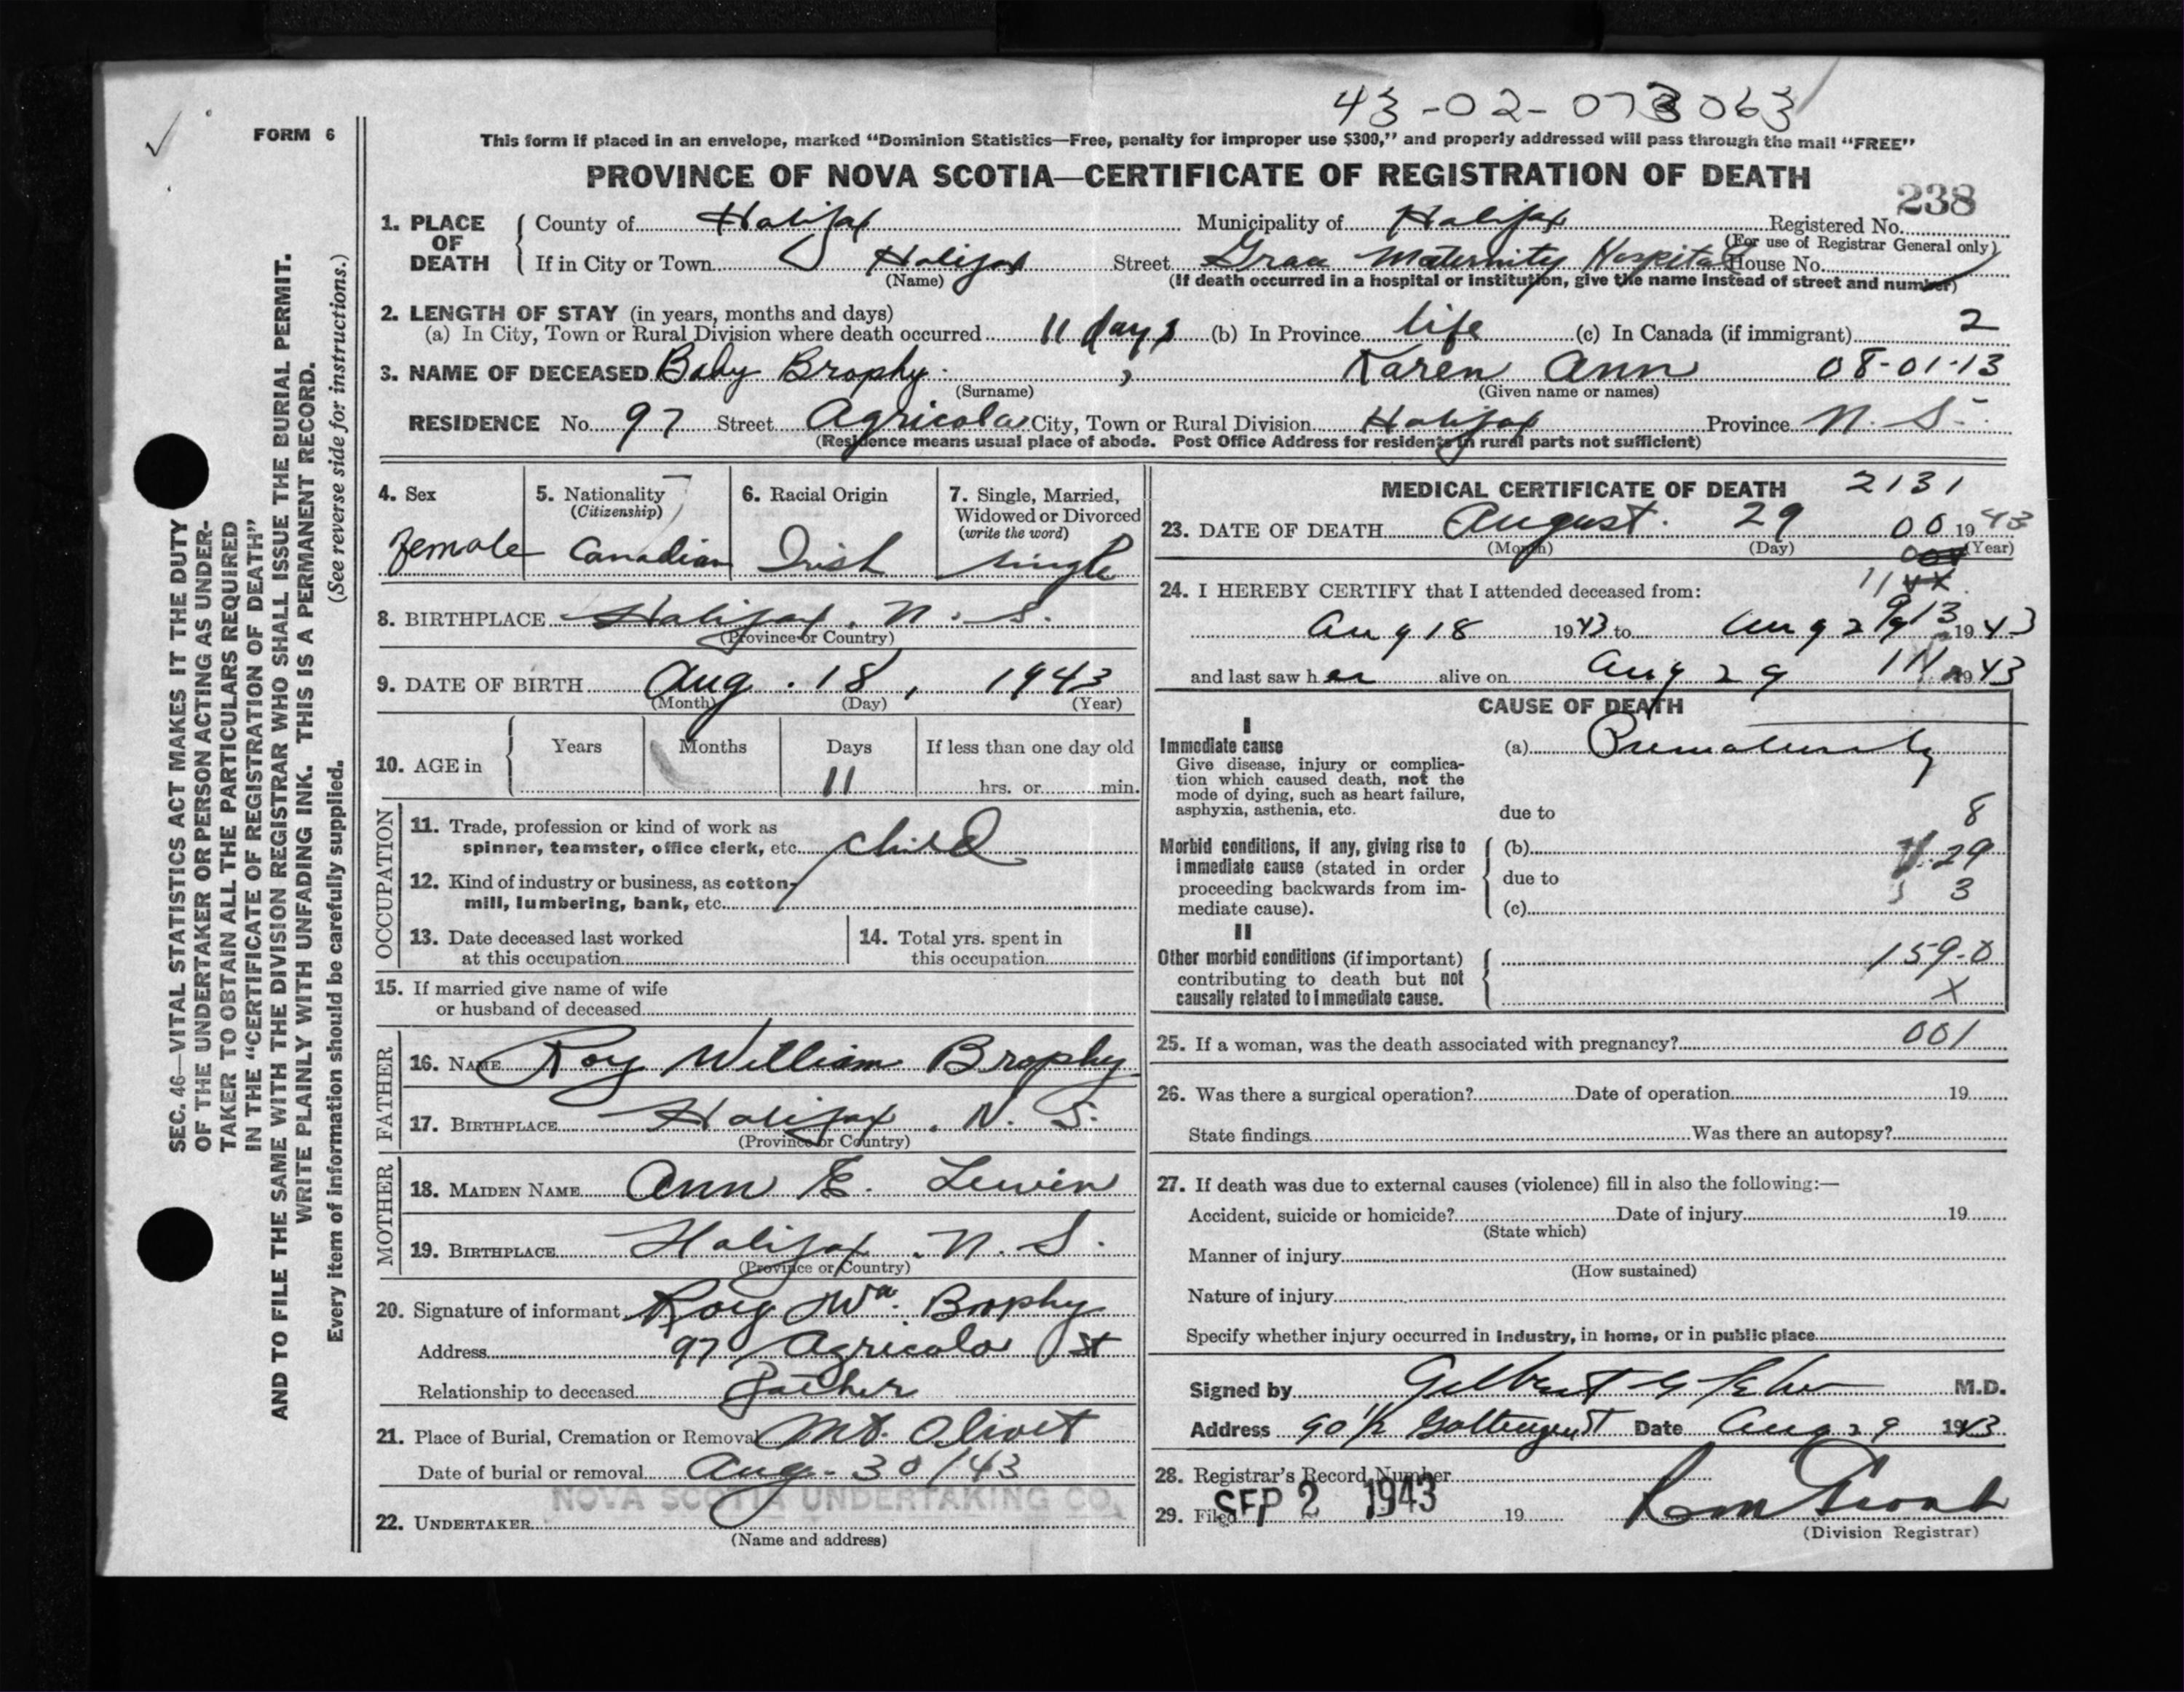 43-02-073063
FORM 6
This form if placed in an envelope, marked "Dominion Statistics—Free, penalty for improper use $300," and properly addressed will pass through the mail "FREE"
PROVINCE OF NOVA SCOTIA—CERTIFICATE OF REGISTRATION OF DEATH
238
1. PLACE OF DEATH County of Halifax Municipality of Halifax Registered No.
(For use of Registrar General only)
If in City or Town Halifax Street Grace Maternity Hospital House No.
(Name) (If death occurred in a hospital or institution, give the name instead of street and number)
2. LENGTH OF STAY (in years, months and days)
(a) In City, Town or Rural Division where death occurred 11 days (b) In Province life (c) In Canada (if immigrant) 2
3. NAME OF DECEASED Baby Brophy , Karen Ann 08-01-13
(Surname) (Given name or names)
RESIDENCE No. 97 Street Agricola City, Town or Rural Division Halifax Province N. S.
(Residence means usual place of abode. Post Office Address for residents in rural parts not sufficient)
4. Sex
female
5. Nationality
(Citizenship)
Canadian
6. Racial Origin
Irish
7. Single, Married,
Widowed or Divorced
(write the word)
single
8. BIRTHPLACE Halifax, N. S.
(Province or Country)
9. DATE OF BIRTH Aug. 18, 1943
(Month) (Day) (Year)
10. AGE in Years Months Days If less than one day old
11 hrs. or min.
OCCUPATION
11. Trade, profession or kind of work as
spinner, teamster, office clerk, etc. child
12. Kind of industry or business, as cotton-
mill, lumbering, bank, etc.
13. Date deceased last worked
at this occupation
14. Total yrs. spent in
this occupation
15. If married give name of wife
or husband of deceased
FATHER
16. NAME Roy William Brophy
17. BIRTHPLACE Halifax, N. S.
(Province or Country)
MOTHER
18. MAIDEN NAME Ann E. Lewin
19. BIRTHPLACE Halifax, N. S.
(Province or Country)
20. Signature of informant Roy Wm. Brophy
Address 97 Agricola St
Relationship to deceased Father
21. Place of Burial, Cremation or Removal Mt. Olivet
Date of burial or removal Aug. 30/43
NOVA SCOTIA UNDERTAKING CO.
22. UNDERTAKER
(Name and address)
MEDICAL CERTIFICATE OF DEATH 2131
23. DATE OF DEATH August 29 00 1943
(Month) (Day) (Year)
24. I HEREBY CERTIFY that I attended deceased from:
Aug 18 1943 to Aug 29 1943
and last saw her alive on Aug 29 1943
CAUSE OF DEATH
I
Immediate cause
Give disease, injury or complica-
tion which caused death, not the
mode of dying, such as heart failure,
asphyxia, asthenia, etc.
(a) Prematurity
due to
8
Morbid conditions, if any, giving rise to
immediate cause (stated in order
proceeding backwards from im-
mediate cause).
(b) 29
due to
3
(c)
II
Other morbid conditions (if important)
contributing to death but not
causally related to immediate cause.
159-0
X
25. If a woman, was the death associated with pregnancy? 001
26. Was there a surgical operation? Date of operation 19
State findings Was there an autopsy?
27. If death was due to external causes (violence) fill in also the following:—
Accident, suicide or homicide? Date of injury 19
(State which)
Manner of injury
(How sustained)
Nature of injury
Specify whether injury occurred in industry, in home, or in public place
Signed by Gilbert M.D.
Address 90 1/2 Date Aug 29 1943
28. Registrar's Record Number
29. Filed SEP 2 1943 19
(Division Registrar)
SEC. 46—VITAL STATISTICS ACT MAKES IT THE DUTY
OF THE UNDERTAKER OR PERSON ACTING AS UNDER-
TAKER TO OBTAIN ALL THE PARTICULARS REQUIRED
IN THE "CERTIFICATE OF REGISTRATION OF DEATH"
AND TO FILE THE SAME WITH THE DIVISION REGISTRAR WHO SHALL ISSUE THE BURIAL PERMIT.
WRITE PLAINLY WITH UNFADING INK. THIS IS A PERMANENT RECORD.
Every item of information should be carefully supplied. (See reverse side for instructions.)